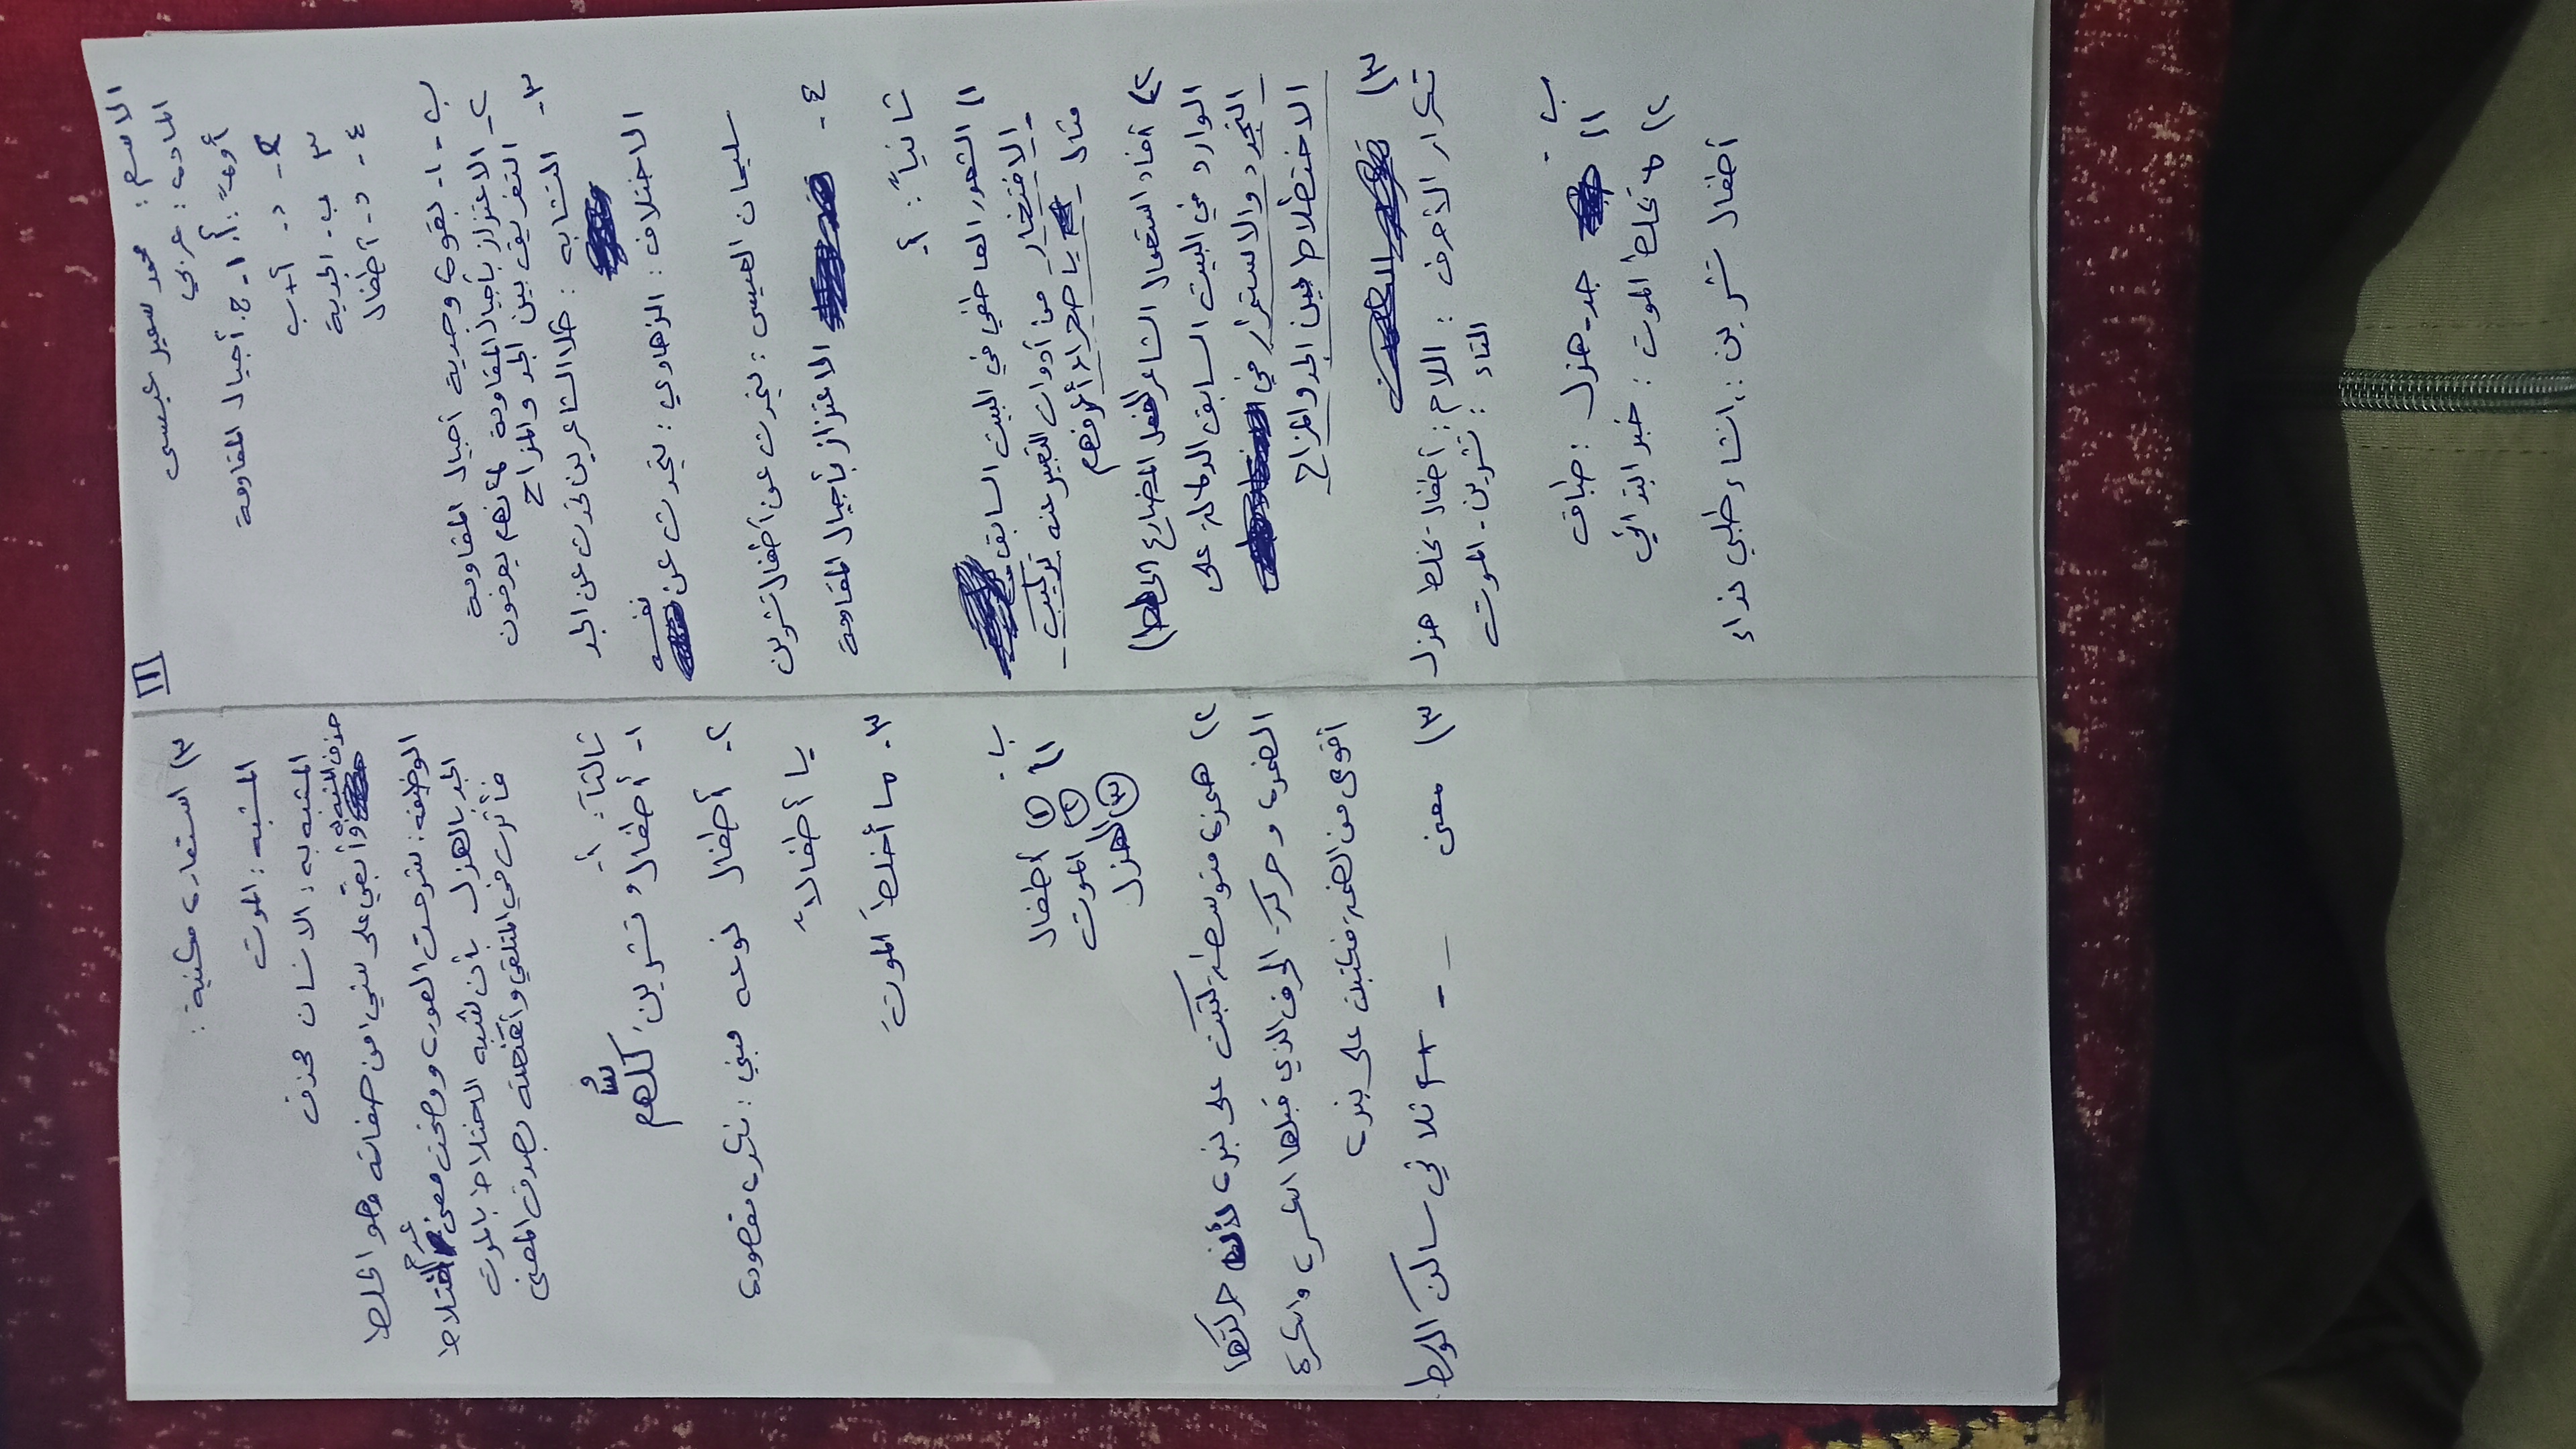 الاسم : محمد سعيد عيسى
المادة : عربي
أولاً : أ. ١- ج. أجيال المقاومة
٢- د. أ+ب
٣ ب- الجدية
٤- د- أطفال
ب- ١- بقوة وجدية أجيال المقاومة
٢- الاعتزاز بأجيال المقاومة لأنهم يعرفون
التفريق بين الجد والمزاح
٣- التشابه : كلا الشاعرين تحدث عن الجد
الاختلاف : الزهاوي : تحدث عن نفسه
سليمان العيسى : تحدث عن أطفال تشرين
٤- الاعتزاز بأجيال المقاومة
ثانياً : أ-
١) الشعور العاطفي في البيت السابق
- الافتخار - من أدوات التعبير عنه تركيب -
مثال يا صحراء أعرفهم
٢) أفاد استعمال الشاعر الفعل المضارع (تخلط)
الوارد في البيت السابق الدلالة على
التجدد والاستمرار في
الاختلاط بين الجد والمزاح
٣)
تكرار الأحرف : اللام : أطفال - تخلط هزل
التاء : تشرين - الموت
ب.
١) جد - هزل : طباق
٢) ما تخلط الموت : خبر ابتدائي
أطفال تشرين : انشاء طلبي نداء
٣) استعارة مكنية :
المشبه : الموت
المشبه به : الانسان محذوف
حذف المشبه به وأبقى على شيء من صفاته وهو الخلط
الوظيفة : شرحت الصورة ووضحت معنى عدم اختلاط
الجد بالهزل بأن شبه الاختلاط بالموت
فأثرت في المتلقي وأقنعته بصدق المعنى
ثالثاً : أ-
١- أطفالُ تشرين كلُّهم
٢- أطفال نوعه مبني : نكرة مقصودة
يا أطفالاً
٣- ما أخلطَ الموتَ
ب.
١) ① أطفال
② الموت
③ الهزل
٢) همزة متوسطة كتبت على نبرة لأن حركتها
الضمة وحركة الحرف الذي قبلها الكسرة والكسرة
أقوى من الضمة فكتبت على نبرة
٣) معنى ثلاثي ساكن الوسط